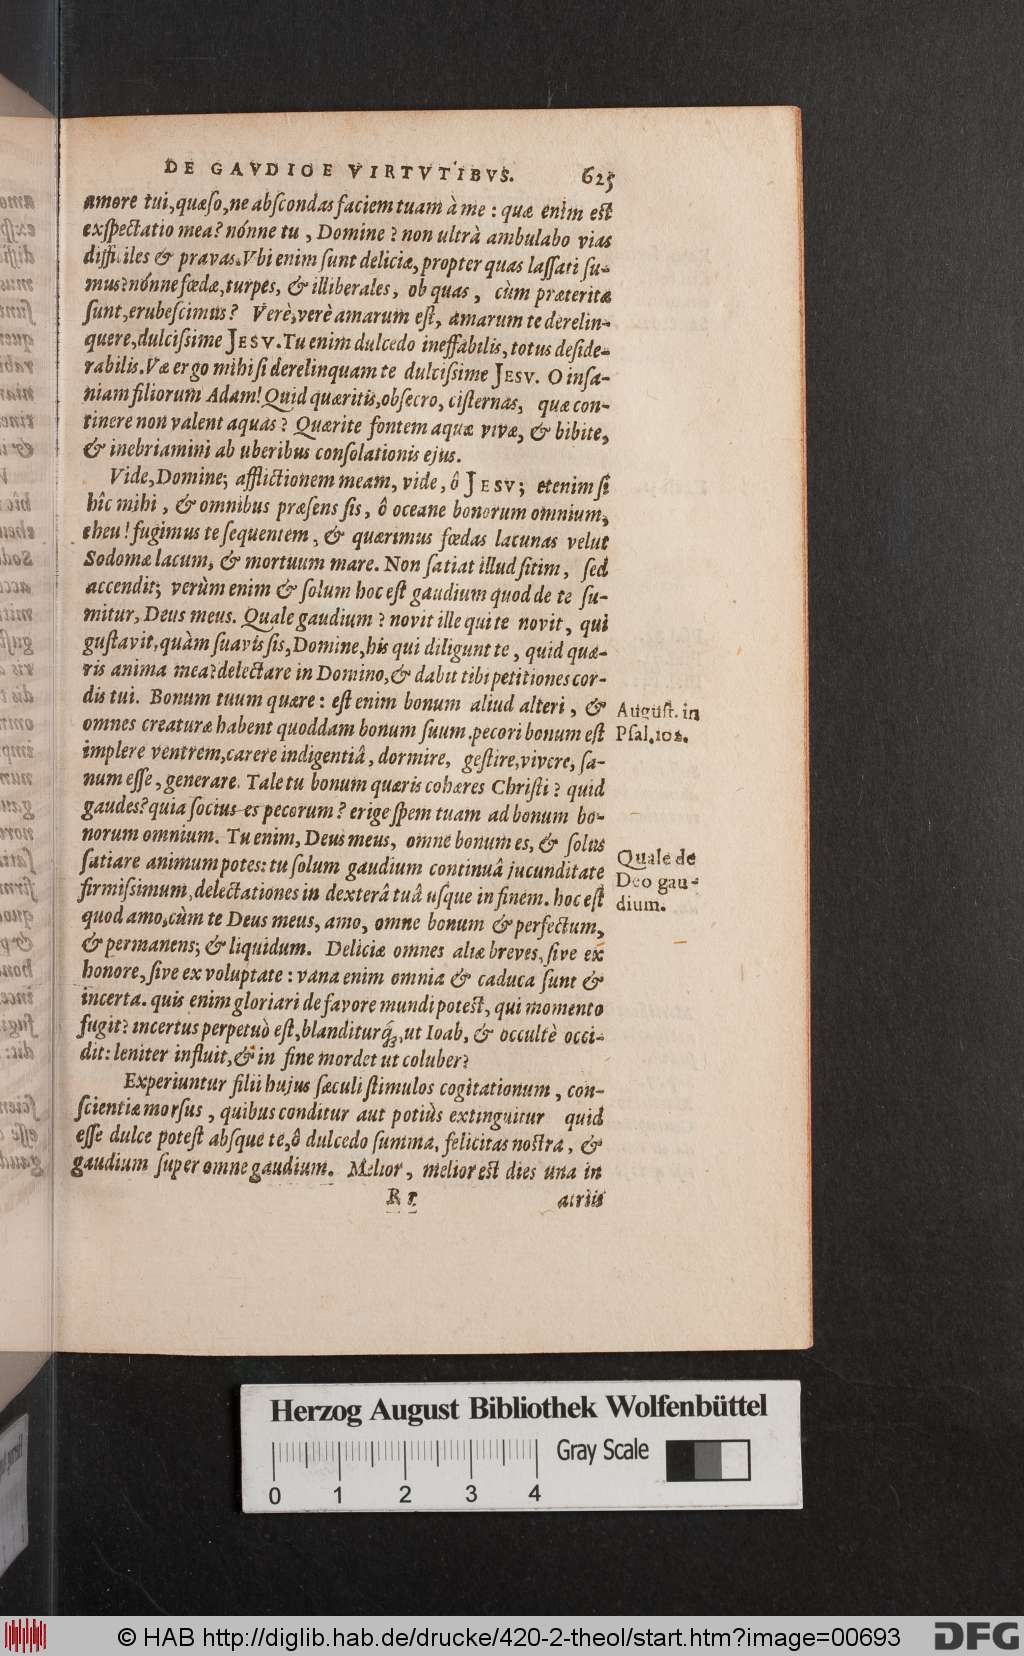 DE GAVDIO E VIRTVTIBVS. 625
amore tui, quæſo, ne abſcondas faciem tuam à me : quæ enim eſt
exſpectatio mea? nónne tu , Domine ? non ultrà ambulabo vias
difficiles & pravas. Vbi enim ſunt deliciæ, propter quas laſſati ſu-
mus? nónne fœdæ, turpes, & illiberales, ob quas , cùm præteritæ
ſunt, erubeſcimus? Verè, verè amarum eſt, amarum te derelin-
quere, dulciſsime JESV. Tu enim dulcedo ineffabilis, totus deſide-
rabilis. Væ ergo mihi ſi derelinquam te dulciſsime JESV. O inſa-
niam filiorum Adam! Quid quæritis, obſecro, ciſternas, quæ con-
tinere non valent aquas? Quærite fontem aquæ vivæ, & bibite,
& inebriamini ab uberibus conſolationis ejus.
Vide, Domine; afflictionem meam, vide, ô JESV; etenim ſi
hîc mihi , & omnibus præſens ſis, ô oceane bonorum omnium,
eheu! fugimus te ſequentem, & quærimus fœdas lacunas velut
Sodomæ lacum, & mortuum mare. Non ſatiat illud ſitim, ſed
accendit; verùm enim & ſolum hoc eſt gaudium quod de te ſu-
mitur, Deus meus. Quale gaudium ? novit ille qui te novit, qui
guſtavit, quàm ſuavis ſis, Domine, his qui diligunt te, quid quæ-
ris anima mea? delectare in Domino, & dabit tibi petitiones cor-
dis tui. Bonum tuum quære: eſt enim bonum aliud alteri , &
omnes creaturæ habent quoddam bonum ſuum. pecori bonum eſt
implere ventrem, carere indigentiâ, dormire, geſtire, vivere, ſa-
num eſſe, generare. Tale tu bonum quæris cohæres Chriſti? quid
gaudes? quia ſocius es pecorum? erige ſpem tuam ad bonum bo-
norum omnium. Tu enim, Deus meus, omne bonum es, & ſolus
ſatiare animum potes: tu ſolum gaudium continuâ jucunditate
firmiſsimum, delectationes in dexterâ tuâ uſque in finem. hoc eſt
quod amo, cùm te Deus meus, amo, omne bonum & perfectum,
& permanens; & liquidum. Deliciæ omnes aliæ breves, ſive ex
honore, ſive ex voluptate: vana enim omnia & caduca ſunt &
incerta. quis enim gloriari de favore mundi poteſt, qui momento
fugit? incertus perpetuò eſt, blanditurq́ꝫ, ut Ioab, & occultè occi-
dit: leniter influit, & in fine mordet ut coluber?
Experiuntur filii hujus ſæculi ſtimulos cogitationum , con-
ſcientiæ morſus, quibus conditur aut potiùs extinguitur quid
eſſe dulce poteſt abſque te, ô dulcedo ſumma, felicitas noſtra, &
gaudium ſuper omne gaudium. Melior, melior eſt dies una in
R r atriis
Auguſt. in
Pſal. 102.
Quale de
Deo gau-
dium.
Herzog August Bibliothek Wolfenbüttel
Gray Scale
0 1 2 3 4
© HAB http://diglib.hab.de/drucke/420-2-theol/start.htm?image=00693 DFG